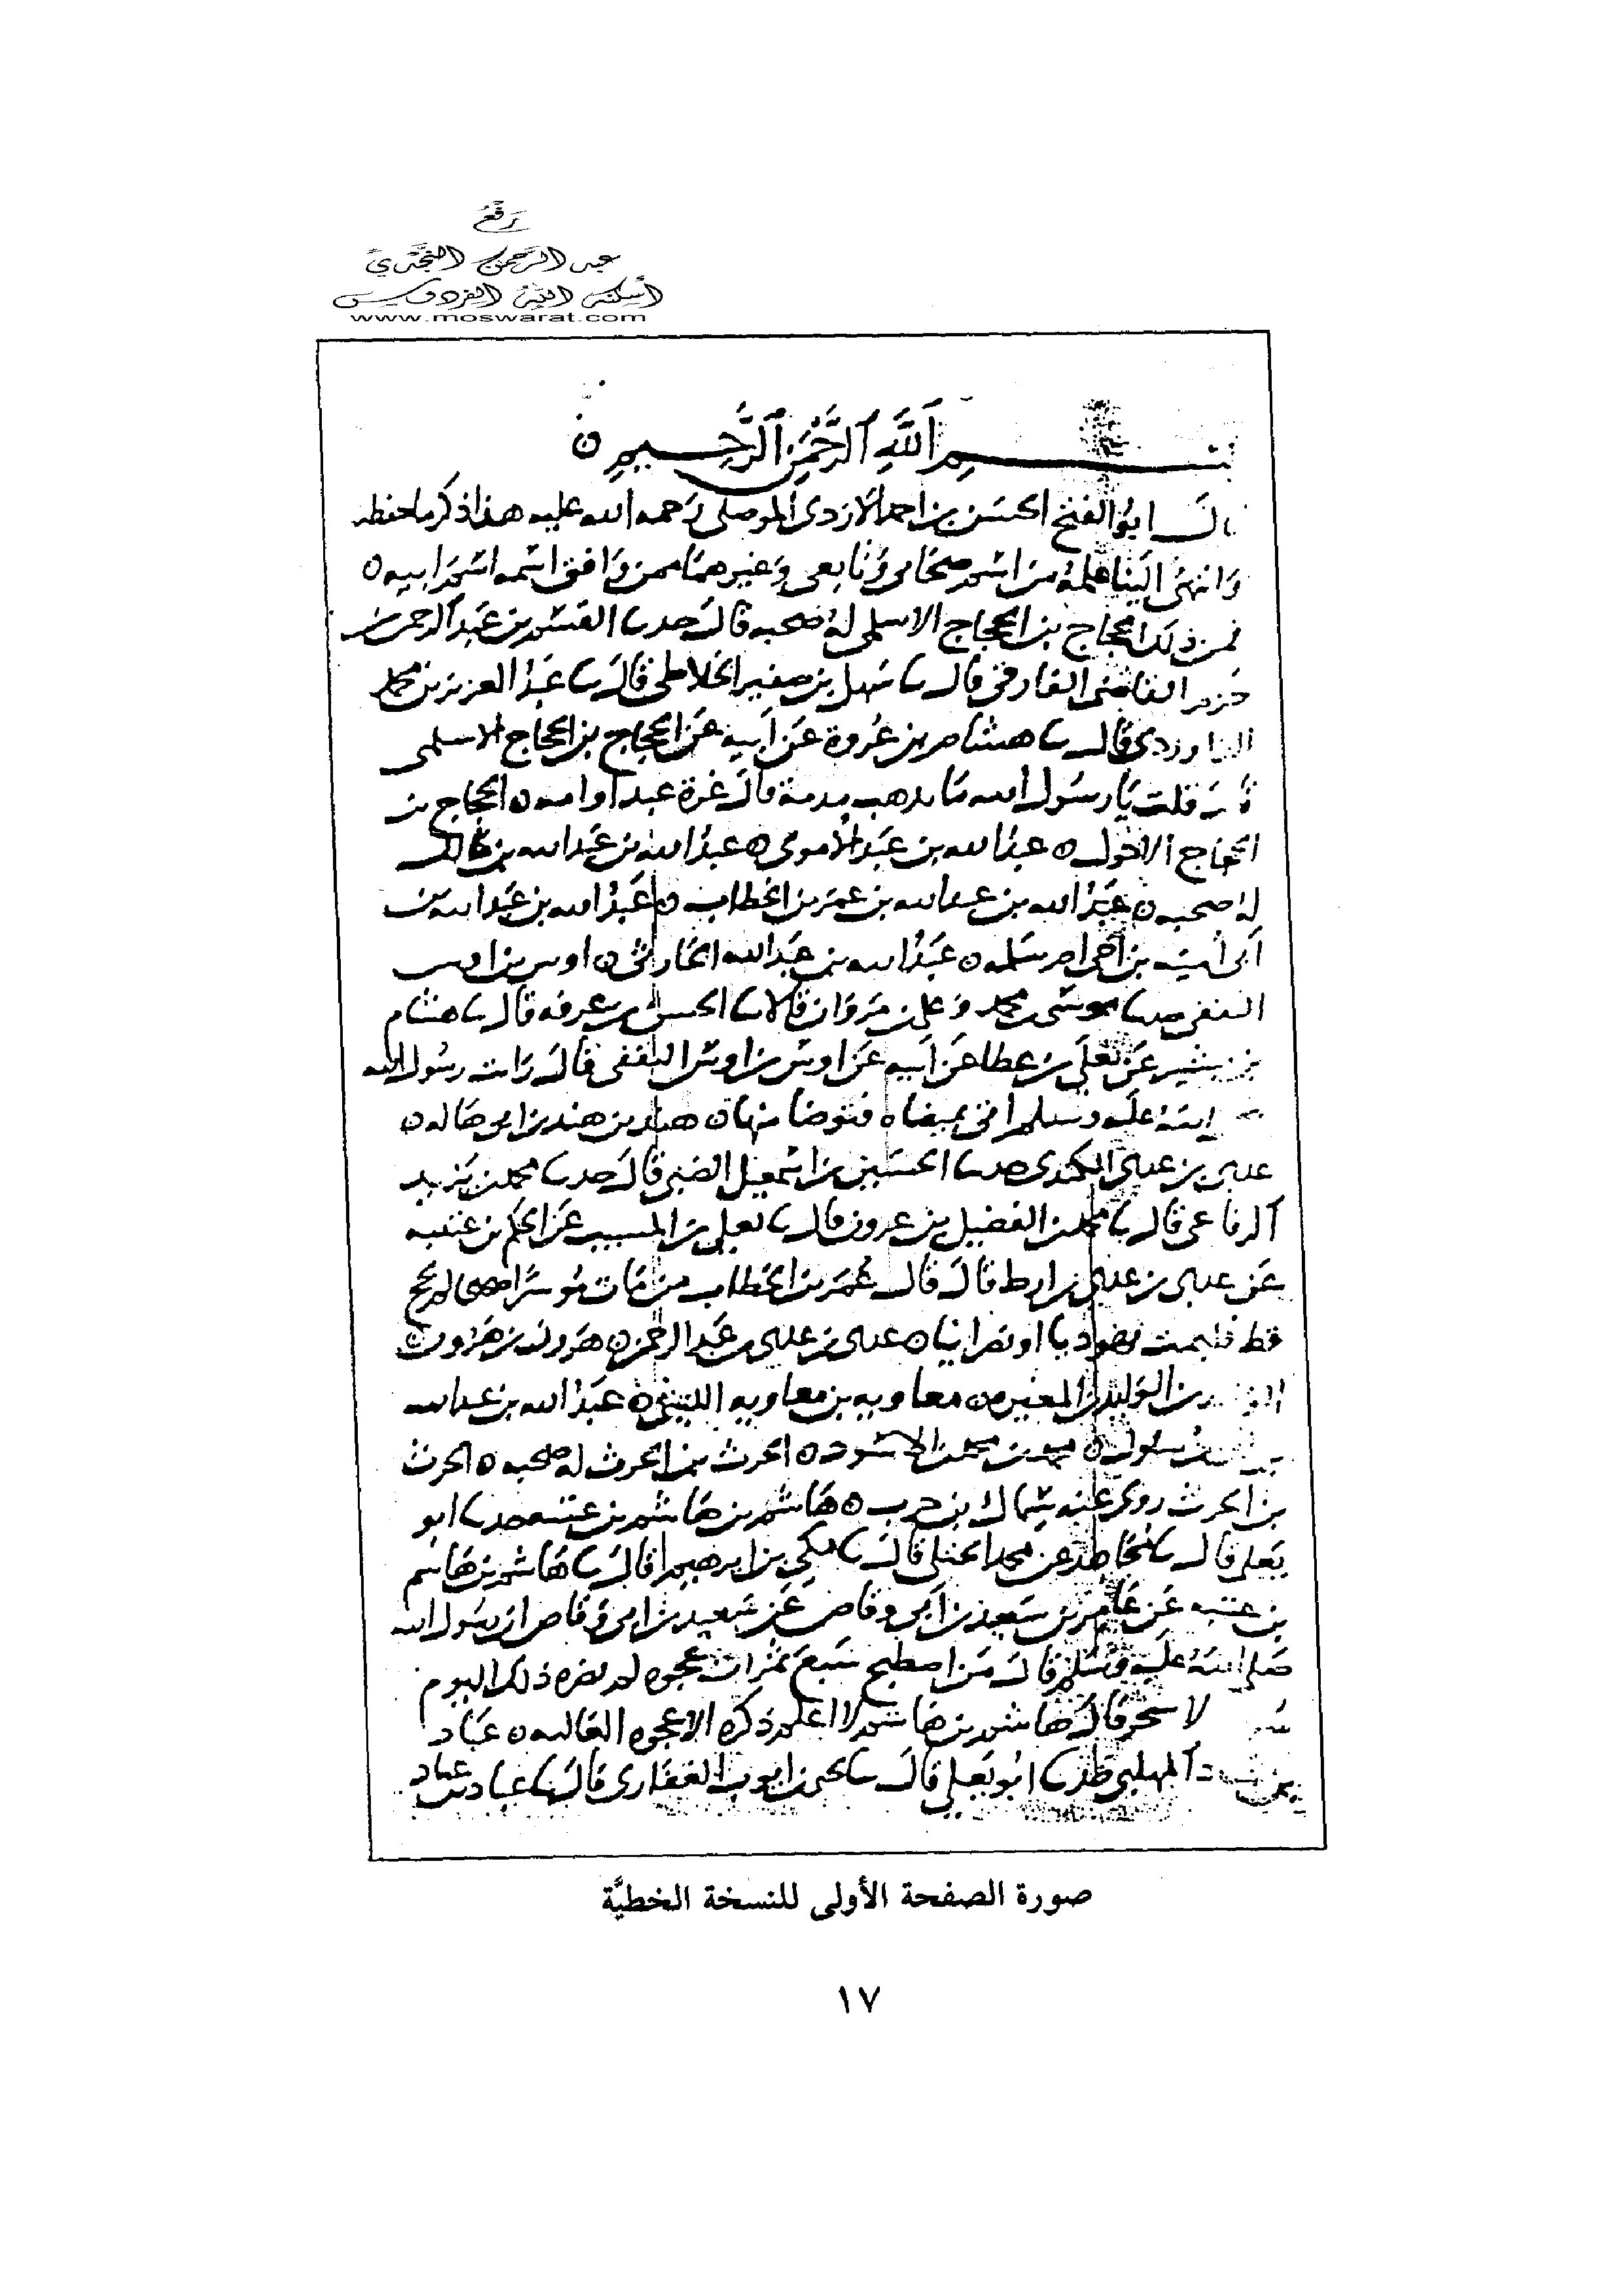 رَفْعُ
عبد الرَّحمن النَّجْدِيّ
أسكنه اللهُ الفردوس
www.moswarat.com
بسم اَللَّهِ اَلرَّحْمَنِ اَلرَّحِيمِ ه
ابو الفتح الحسن بن احمد الازدى الموصلى رحمه الله عليه هذا ذكر ما حفظه
وانتهى الينا علمه من اسم صحابى وتابعى وغيرهما ممن وافق اسمه اسم ابيه ه
فمن ذلك الحجاج بن الحجاج الاسلمى له صحبه قال حدثنا القسم بن عبد الرحمن
القاضى الفارقى قال ثنا سهل بن صقير الخلاطى قال ثنا عبد العزيز بن محمد
الدراوردى قال ثنا هشام بن عروة عن ابيه عن الحجاج بن الحجاج الاسلمى
قلت يا رسول الله ما يذهب مذمة قال غرة عبد او امه ه الحجاج بن
الحجاج الاحول ه عبد الله بن عبد الاموى ه عبد الله بن عبد الله بن مالك
له صحبه ه عبد الله بن عبد الله بن عمر بن الخطاب ه عبد الله بن عبد الله بن
ابى امية بن اخى ام سلمه ه عبد الله بن عبد الله الحارثى ه اوس بن اوس
الثقفى حدثنا موسى بن محمد وعلى بن مروان قالا ثنا الحسن بن عرفه قال ثنا هشام
بن بشير عن يعلى بن عطا عن ابيه عن اوس بن اوس الثقفى قال رات رسول الله
الله عليه وسلم اتى بميضاه فتوضا منها ه هند بن هند بن ابى هاله ه
عدى بن عدى الكندى حدثنا الحسين بن اسمعيل الضبى قال حدثنا محمد بن يزيد
الرفاعى قال ثنا محمد بن الفضيل بن غزوان قال ثنا يعلى بن المسيب عن الحكم بن عتيبه
عن عدى بن عدى بن ارط قال قال عمر بن الخطاب من مات موسرا لم يحج
قط فليمت يهوديا او نصرانيا ه عدى بن عدى بن عبد الرحمن ه هرون بن هرون ه
بن الوليد بن المغيره ه معاويه بن معاويه الليثى ه عبد الله بن عبد الله
سلول ه بن محمد بن الاسود ه الحرث بن الحرث له صحبه ه الحرث
بن الحرث روى عنه سماك بن حرب ه هاشم بن هاشم بن عتبه حدثنا ابو
يعلى قال ثنا مجاهد عن محمد الختلى قال ثنا مكى بن ابرهيم قال ثنا هاشم بن هاشم
بن عتبه عن عامر بن سعد بن ابى وقاص عن سعد بن ابى وقاص ان رسول الله
صلى الله عليه وسلم قال من اصطبح سبع تمرات عجوه لم يضره ذلك اليوم
لا سحر قال هاشم بن هاشم لا اعلم ذكره الا عجوه العاليه ه عباد
بن المهلبى حدثنا ابو يعلى قال ثنا يحيى بن ايوب الغفارى قال ثنا عباد بن عباد
صورة الصفحة الأولى للنسخة الخطيَّة
١٧